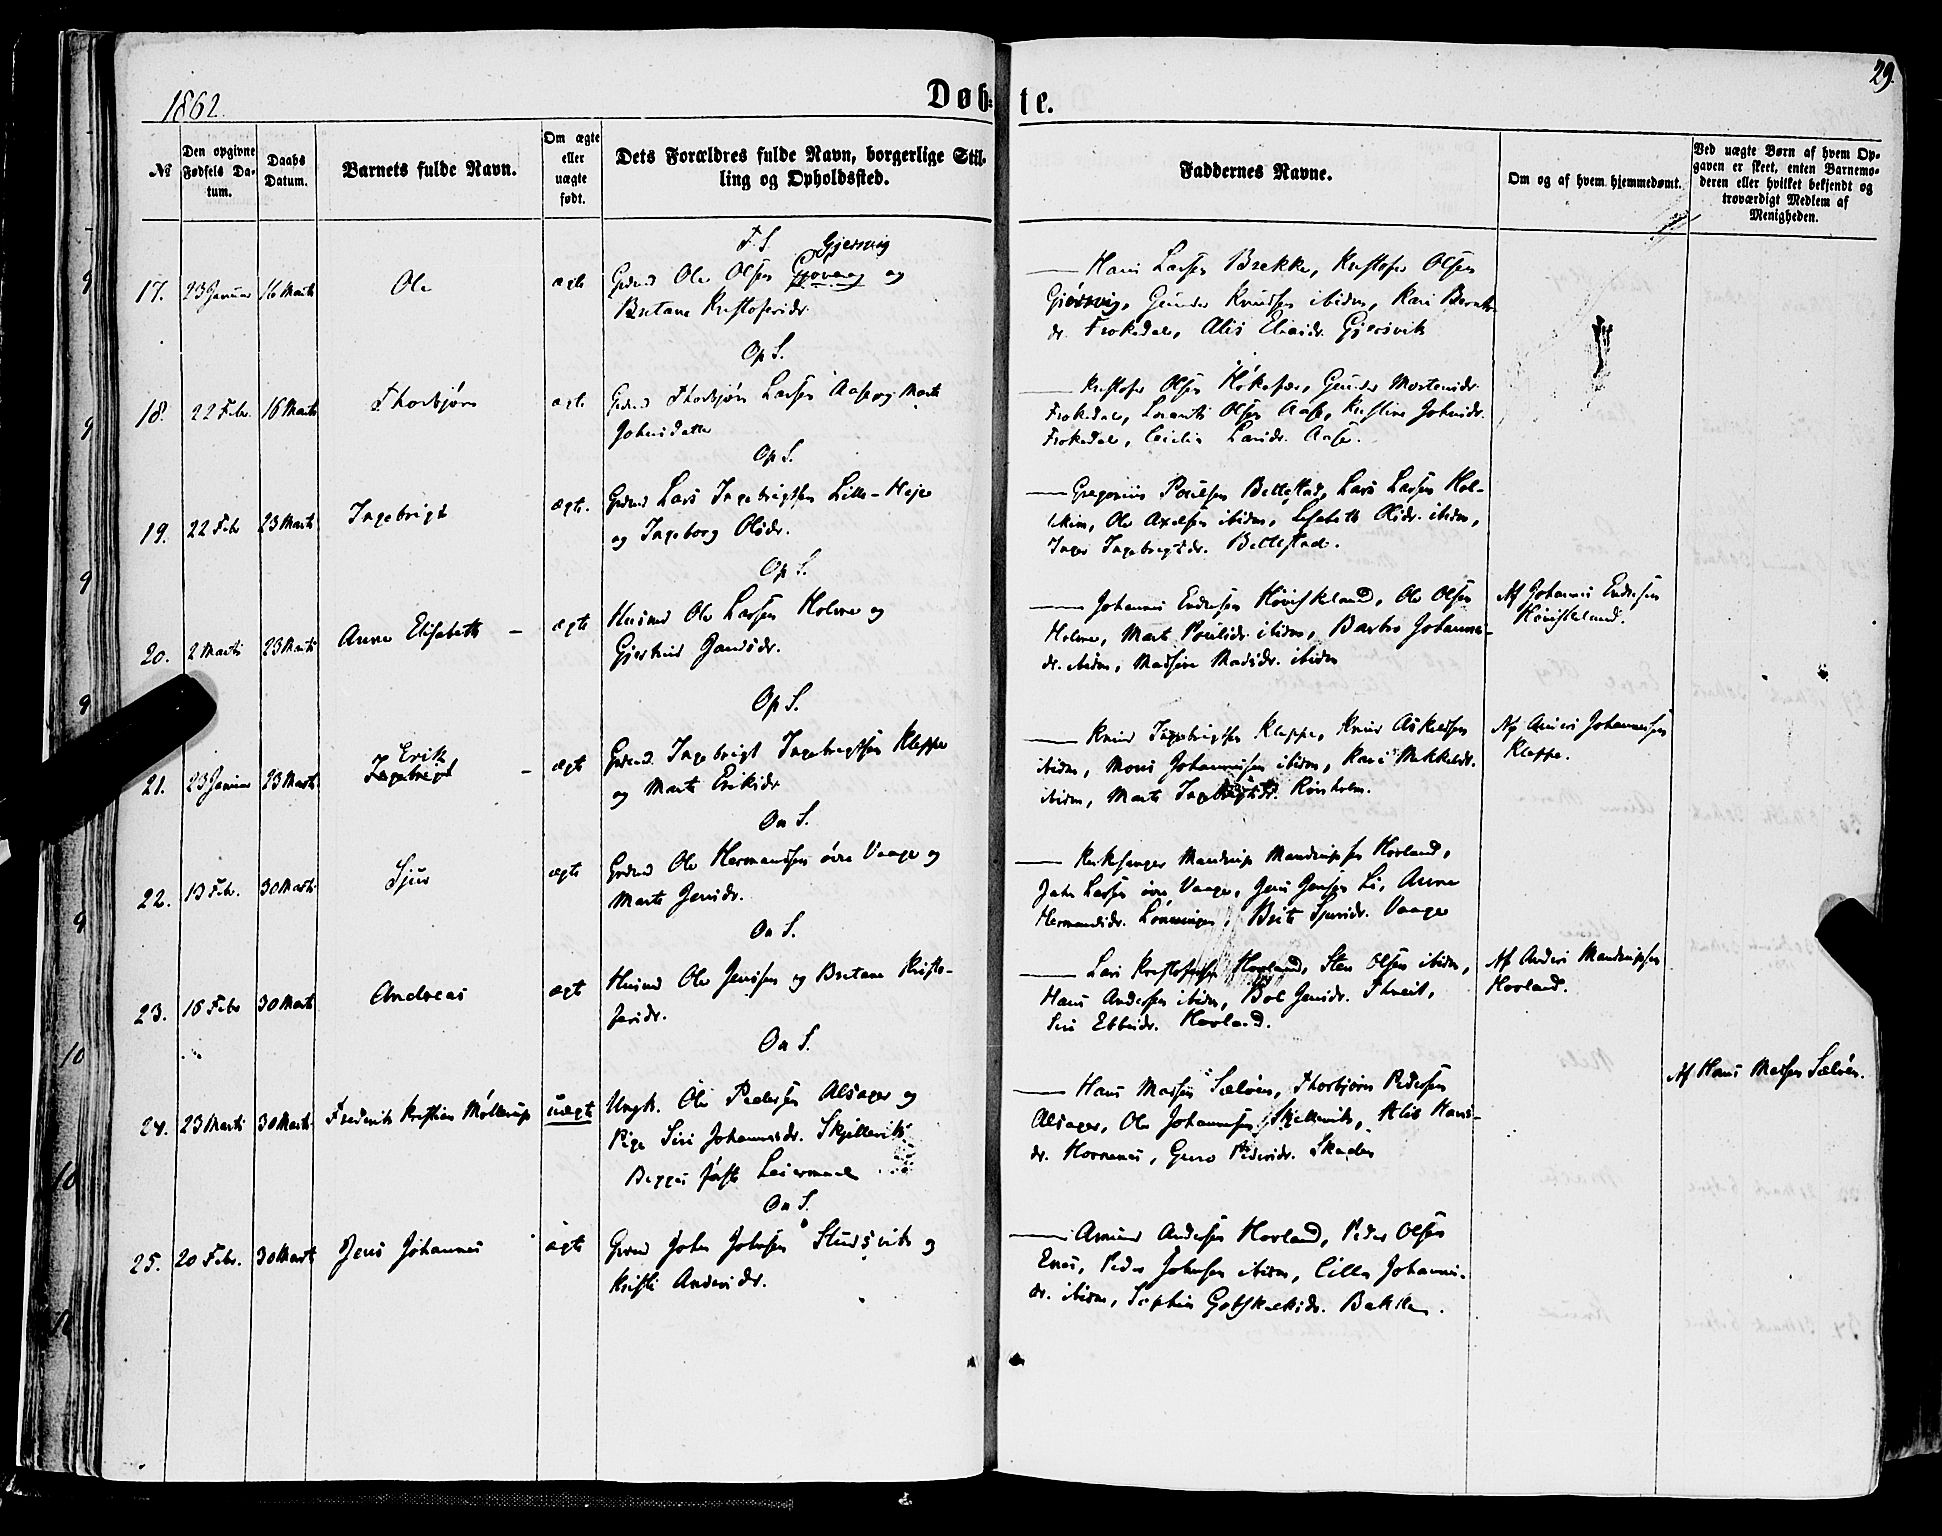 29.
1862.
Døbte.
№
Den opgivne Fødsels Datum.
Daabs Datum.
Barnets fulde Navn.
Om ægte eller uægte født.
Dets Forældres fulde Navn, borgerlige Stilling og Opholdssted.
Faddernes Navne.
Om og af hvem hjemmedøbt.
Ved uægte Børn af hvem Opgaven er skeet, enten Barnemoderen eller hvilket bekjendt og troværdigt Medlem af Menigheden.
F. S. Gjersvig
17. 23 Januar 16 Marts Ole ægte Gdmd Ole Olsen og
Bretane Kristofersdr.
— Hans Larsen Brekke, Kristofer Olsen
Gjersvig, Gunder Knudsen ibidm, Kari Berents-
dr. Frokedal, Alis Eliasdr. Gjersvik
Op S.
18. 22 Febr. 16 Marts Thorbjørn ægte Gdmd Thorbjørn Larsen Aase og Marte
Johnsdatter
— Kristofer Olsen Gunder Mortensdr.
Frokedal, Olsen Aase, Kristine Johnsdr.
Frokedal, Cecilia Larsdr. Aase.
Op S.
19. 22 Febr 23 Marts Ingebrigt ægte. Gdmd Lars Ingebrigtsen Lille-Heje
og Ingeborg Olsdr.
— Gregorius Poulsen Bellestad, Lars Larsen
Ole Axelsen ibidm, Lisabeth Olsdr. ibidm,
Inger Ingebrigtsdr. Bellestad.
Op S.
20. 2 Marts 23 Marts Anne Elisabeth — ægte Husmd Ole Larsen Holme og
Gjertrud
— Johannes Endresen Høviskeland, Ole Olsen
Holme, Marte Poulsdr ibidm, Barbro Johannes-
dr. ibidm, Madsine Madsdr. ibidm
Af Johannes Endresen
Høviskeland.
Op S.
Erik
21. 23 Januar 23 Marts Ingebrigt — ægte Gdmd Ingebrigt Ingebrigtsen Kleppe
og Marte Eriksdr
— Knud Ingebrigtsen Kleppe, Knud Askeldsen
ibidm, Mons Johannessen ibidm, Kari Mikkelsdr.
ibidm, Marte Ingebrigtsdr. Røksholm.
Af Anders Johannessen
Kleppe.
On S.
22. 13 Febr. 30 Marts Sjur ægte Gdmd Ole Hermandsen øvre Vaage og
Marte Jensdr.
— Kirkesanger Mandrup Mandrupsen Hovland,
John Larsen øvre Vaage, Jens Jensen Li, Anne
Hermandsdr. Lønningen, Brite Sjursdr. Vaage
On S.
23. 16 Febr 30 Marts Andreas ægt Husmd Ole Jenssen og Bretane Kristo-
fersdr.
— Lars Kristofersen Hovland, Sten Olsen ibidm,
Hans Andersen ibidm, Bol Jensdr. Thveit,
Siri Ebbesdr. Hovland.
Af Anders Mandrupsen
Hovland.
On S.
24. 23 Marts 30 Marts Frederik Kristian Møllerup uægte Ungk. Ole Pedersen Alsager og
Pige Siri Johannesdr. Skjellevik
Begges første Leiermaal
— Hans Madsen Sæløen, Thorbjørn Pedersen
Alsager, Ole Johannesen Skjellevik, Alis Hans-
dr. Hovnenes, Guro Pedersdr. Skaden
Af Hans Madsen Sæløen.
On S.
25. 20 Febr. 30 Marts Jens Johannes ægte Gdmd John Johnsen Skudsvik og
Kristi Andersdr.
— Amund Andersen Hovland, Peder Olsen
Enes, Peder Johnsen ibidm, Cille Johannes-
dr. ibidm, Sophie Gotskalksdr. Bakken.